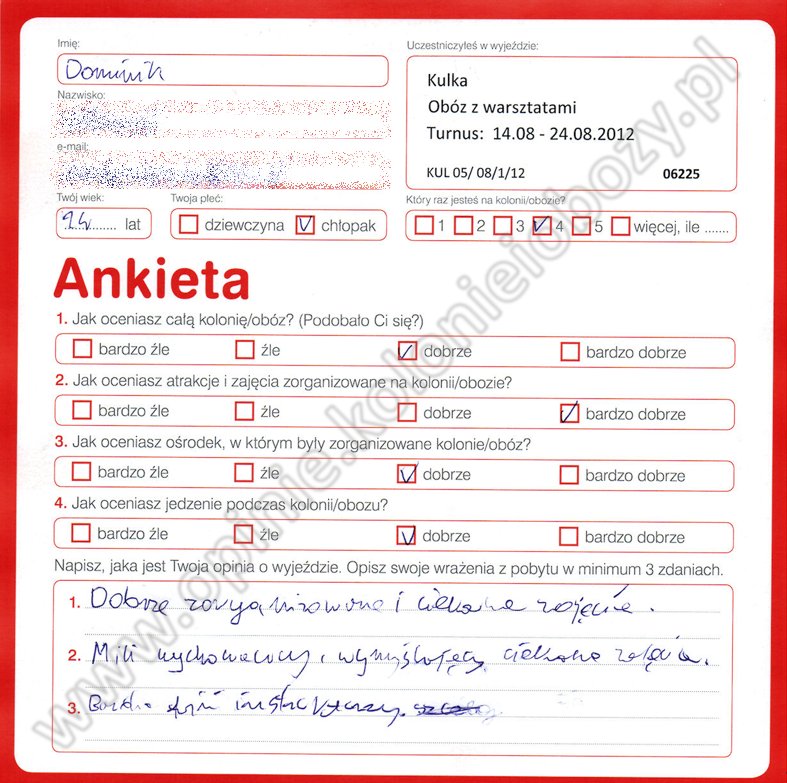 Imię:
Dominik
Uczestniczyłeś w wyjeździe:
Kulka
Obóz z warsztatami
Turnus: 14.08 - 24.08.2012
KUL 05/ 08/1/12 06225
Nazwisko:
e-mail:
Twój wiek:
lat
Twoja płeć:
dziewczyna chłopak
Który raz jesteś na kolonii/obozie?
1 2 3 4 5 więcej, ile .......
Ankieta
1. Jak oceniasz całą kolonię/obóz? (Podobało Ci się?)
bardzo źle źle dobrze bardzo dobrze
2. Jak oceniasz atrakcje i zajęcia zorganizowane na kolonii/obozie?
bardzo źle źle dobrze bardzo dobrze
3. Jak oceniasz ośrodek, w którym były zorganizowane kolonie/obóz?
bardzo źle źle dobrze bardzo dobrze
4. Jak oceniasz jedzenie podczas kolonii/obozu?
bardzo źle źle dobrze bardzo dobrze
Napisz, jaka jest Twoja opinia o wyjeździe. Opisz swoje wrażenia z pobytu w minimum 3 zdaniach.
1. Dobrze zorganizowane i ciekawe zajęcia.
2. Mili wychowawcy, wymyślający ciekawe zajęcia.
3. Bardzo fajni instruktorzy.
www.opinie.kolonieiobozy.pl